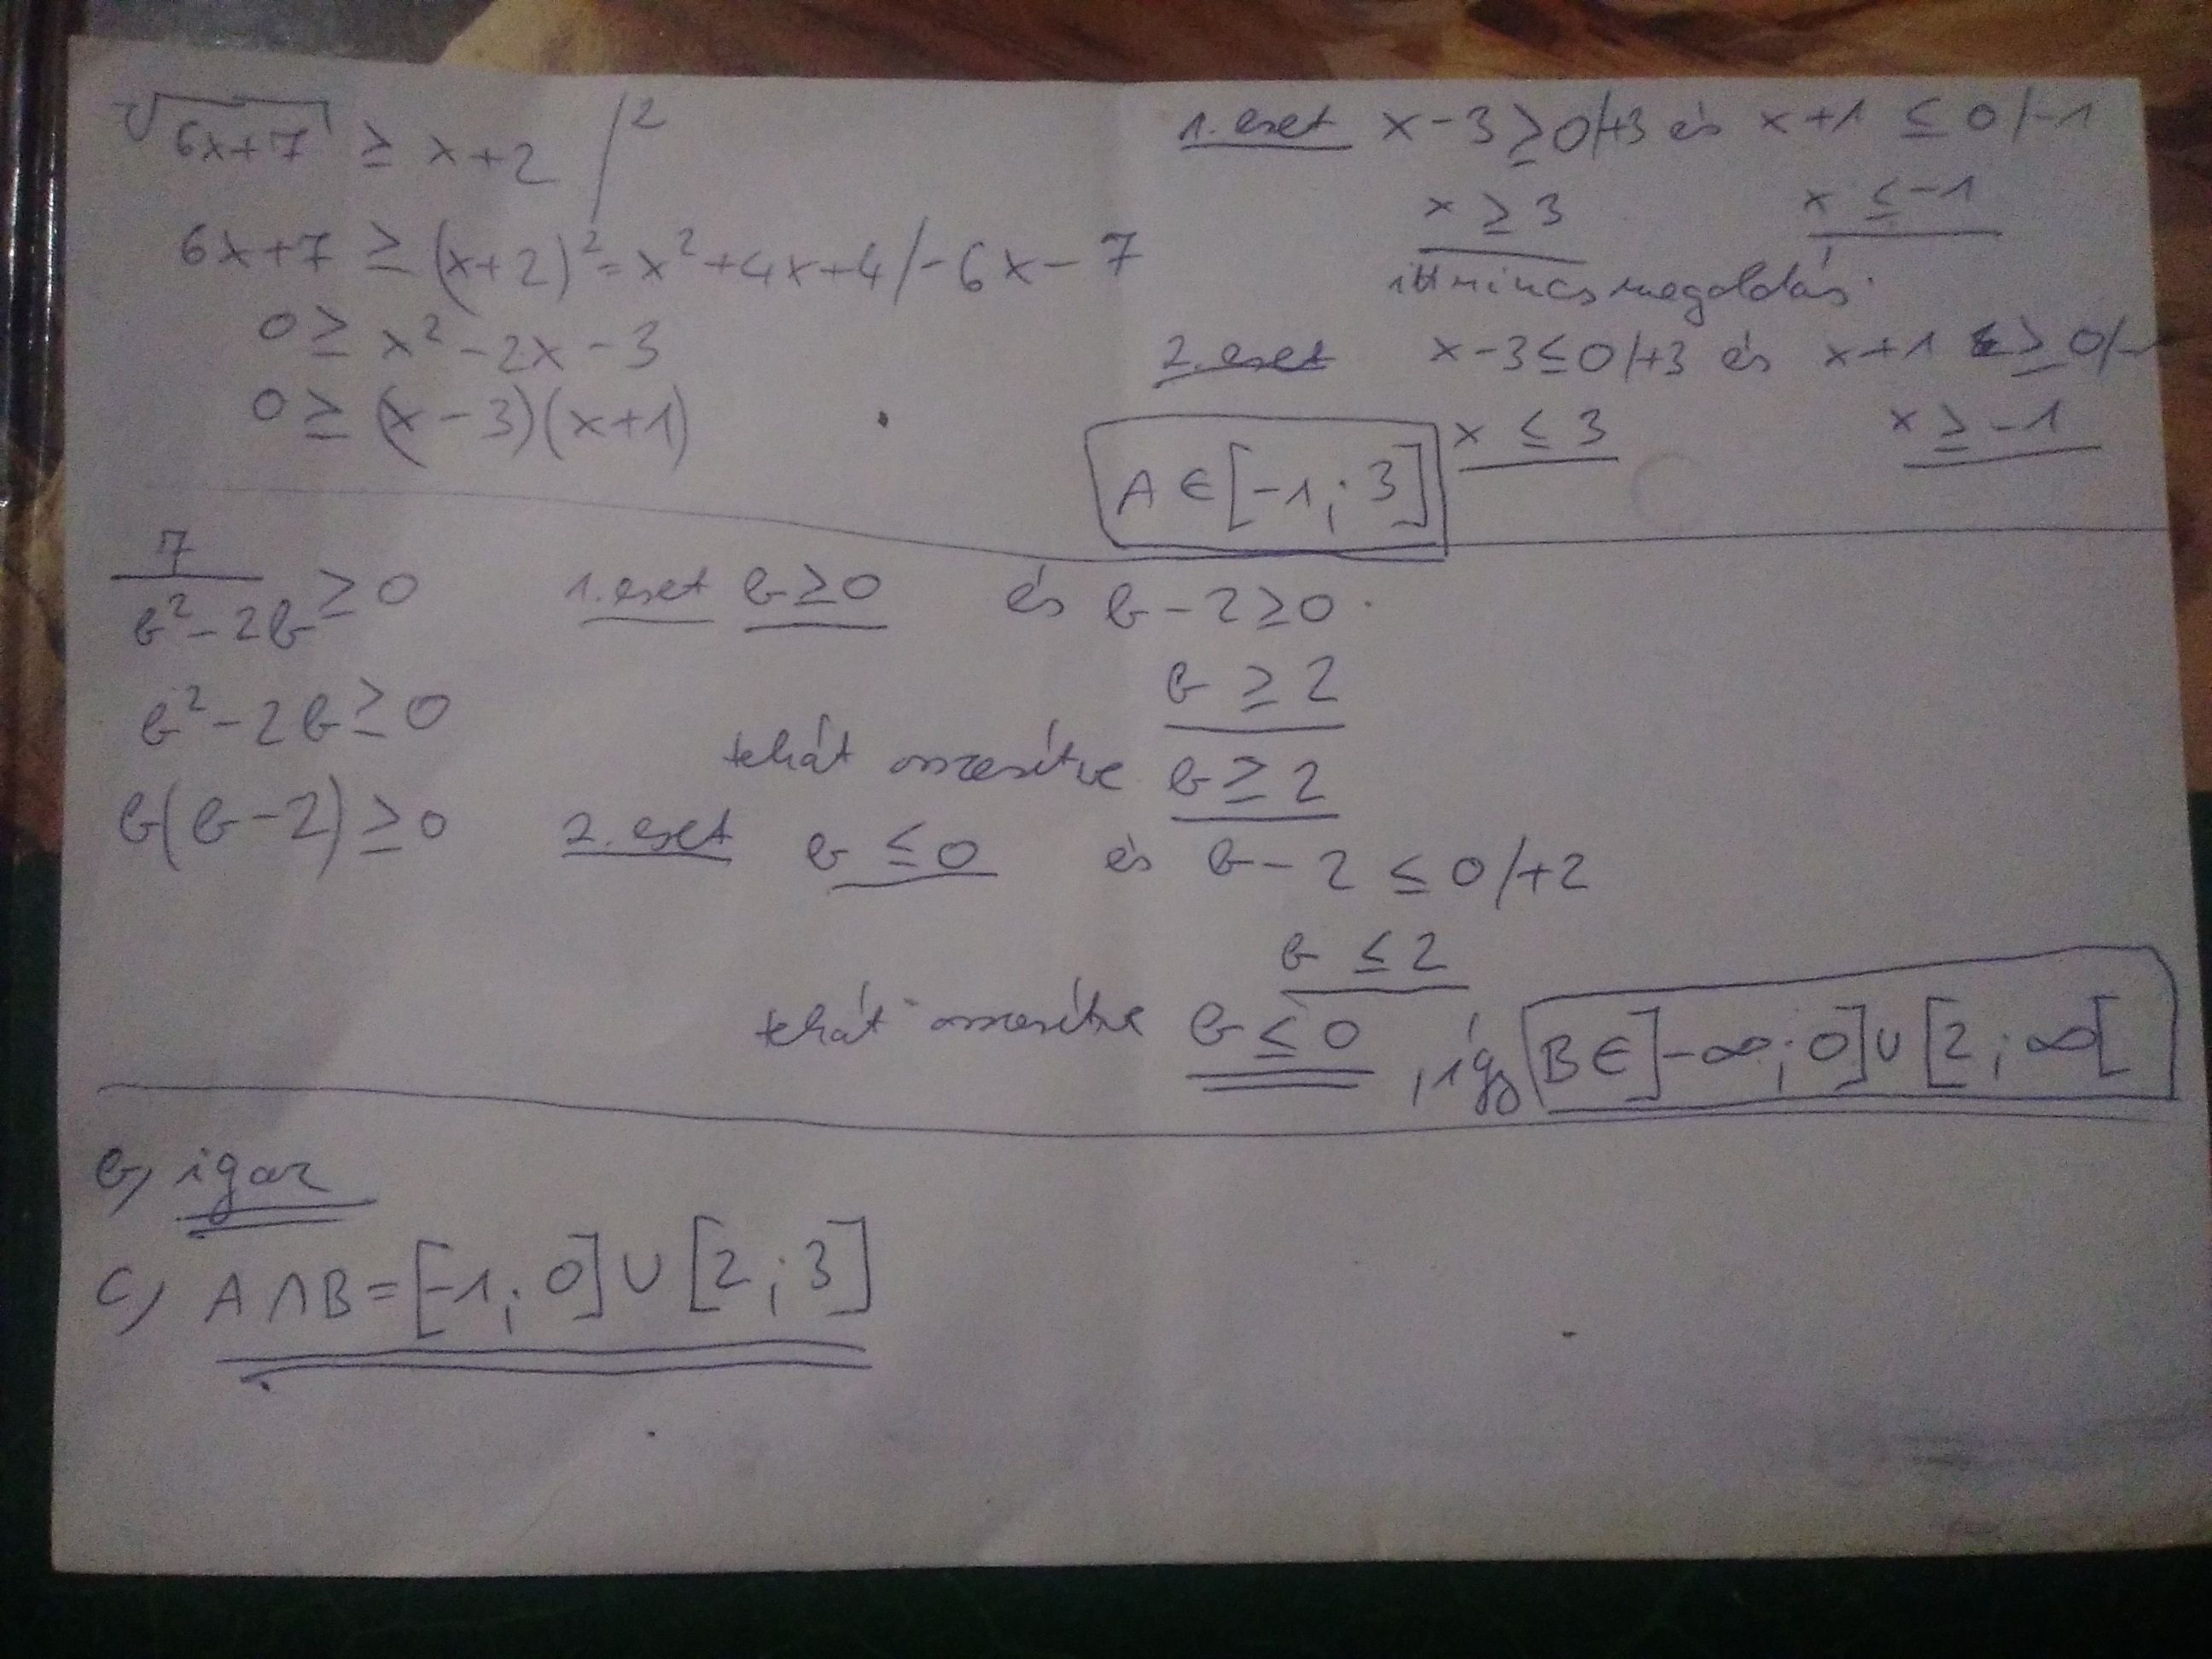 √6x+7 ≥ x+2 /²
6x+7 ≥ (x+2)²= x²+4x+4 /-6x-7
0 ≥ x²-2x-3
0 ≥ (x-3)(x+1)
1. eset x-3 ≥ 0/+3 és x+1 ≤ 0 /-1
x ≥ 3 x ≤ -1
itt nincs megoldás.
2. eset x-3 ≤ 0 /+3 és x+1 ≥ 0/-
x ≤ 3 x ≥ -1
A ∈ [-1; 3]
7/(b²-2b) ≥ 0
b²-2b ≥ 0
b(b-2) ≥ 0
1. eset b ≥ 0 és b-2 ≥ 0
b ≥ 2
tehát összesítve b ≥ 2
2. eset b ≤ 0 és b-2 ≤ 0 /+2
b ≤ 2
tehát összesítve b ≤ 0, így B ∈ ]-∞; 0] ∪ [2; ∞[
b, igaz
c, A ∩ B = [-1; 0] ∪ [2; 3]